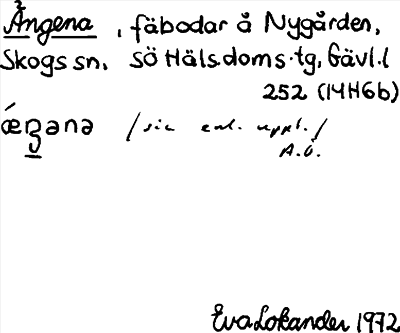 Ängena, fäbodar å Nygården,
Skogs sn. SÖ Häls.doms.tg, Gävl.l
252 (14H6b)
ǽŋəna /sic enl. uppl./
A.Ö.
Eva Lokander 1972